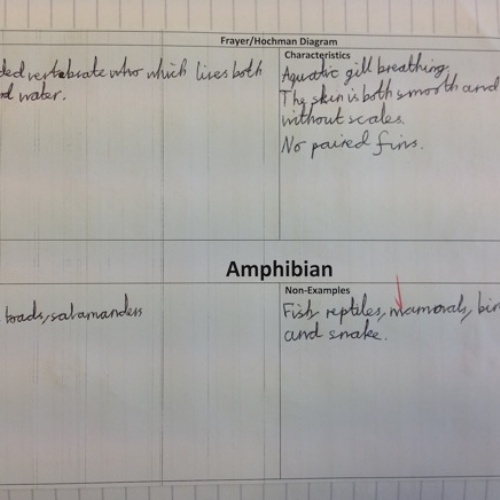 Frayer/Hochman Diagram
ded vertebrate who which lives both
d water.
Characteristics
Aquatic gill breathing.
The skin is both smooth and
without scales.
No paired fins.
Amphibian
toads, salamanders
Non-Examples
Fish, reptiles, mamorals, bir
and snake.